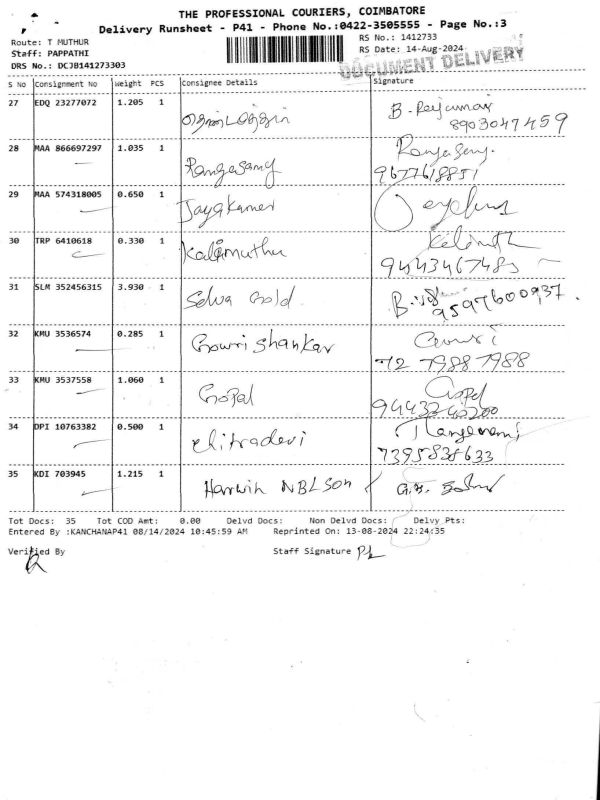 THE PROFESSIONAL COURIERS, COIMBATORE
Delivery Runsheet - P41 - Phone No.:0422-3505555 - Page No.:3
Route: T MUTHUR
RS No.: 1412733
Staff: PAPPATHI
RS Date: 14-Aug-2024
DRS No.: DCJB141273303
DOCUMENT DELIVERY
S No Consignment No Weight PCS Consignee Details Signature
27 EDQ 23277072 1.205 1 B. Rajkumar
8903047459
28 MAA 866697297 1.035 1 Rangasamy Rangasamy.
9677618851
29 MAA 574318005 0.650 1 Jayakumar
30 TRP 6410618 0.330 1 Kalimuthu Kalimuth
9443467485
31 SLM 352456315 3.930 1 Selva Gold B.
9597600937.
32 KMU 3536574 0.285 1 Gowri Shankar Gowri
72 7988 7988
33 KMU 3537558 1.060 1 Gopal Gopal
9443240200
34 DPI 10763382 0.500 1 Chitradevi
7395838633
35 KDI 703945 1.215 1 Harwin NBLSon
Tot Docs: 35 Tot COD Amt: 0.00 Delvd Docs: Non Delvd Docs: Delvy Pts:
Entered By :KANCHANAP41 08/14/2024 10:45:59 AM Reprinted On: 13-08-2024 22:24:35
Verified By Staff Signature